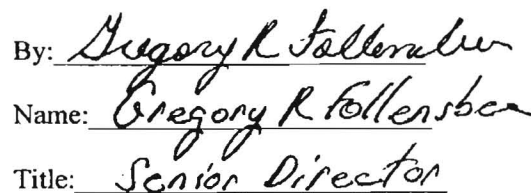 By: Gregory R Follensbee
Name: Gregory R Follensbee
Title: Senior Director